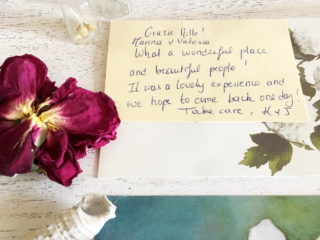 Grazie Mille!
Hanna & Valeria
What a wonderful place
and beautiful people!
It was a lovely experience and
we hope to come back one day!
Take care, K & J